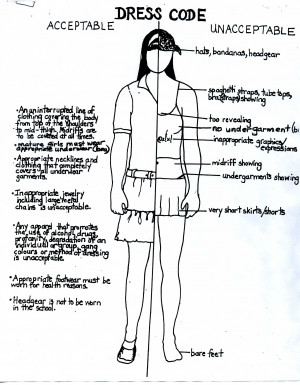 DRESS CODE
ACCEPTABLE
UNACCEPTABLE
hats, bandanas, headgear
spaghetti straps, tube tops,
bra straps showing
too revealing
no undergarment (b
inappropriate graphics/
expressions
midriff showing
undergarments showing
very short skirts/shorts
bare feet
•An uninterrupted line of
clothing covering the body
from top of the shoulders
to mid-thigh. Midriffs are
to be covered at all times.
•mature girls must wear
appropriate underwear (bra)
•Appropriate necklines and
clothing that completely
covers all under
garments.
•Inappropriate jewelry
including large metal
chains is unacceptable.
•Any apparel that promotes
the use of alcohol, drugs,
profanity, degradation of an
individual or group, gang
colours or method of dressing
is unacceptable.
•Appropriate footwear must be
worn for health reasons.
•Headgear is not to be worn
in the school.